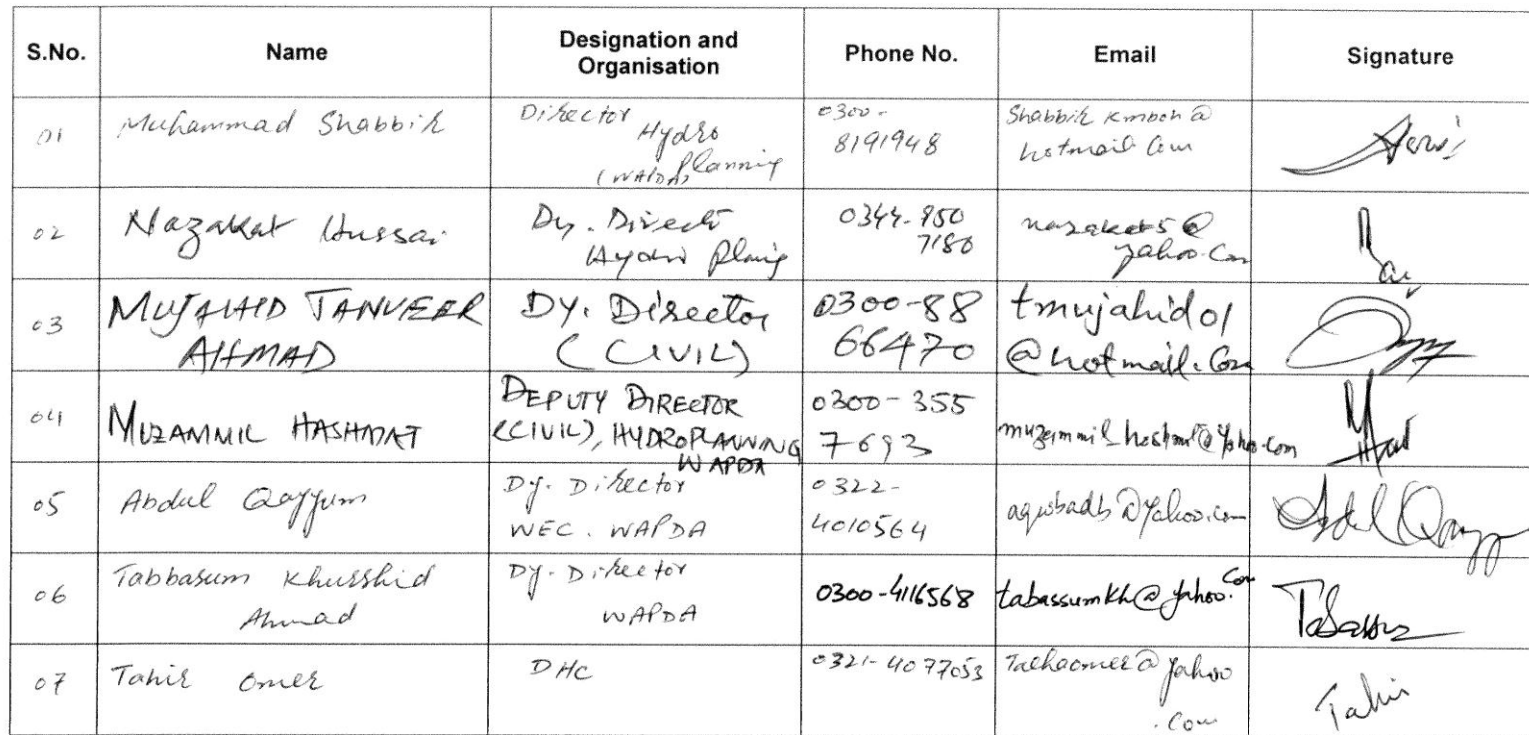 S.No. Name Designation and Organisation Phone No. Email Signature
01 Muhammad Shabbir Director Hydro Planning (WAPDA) 0300-8191948 hotmail Com
02 Nazakat Hussai Dy. Hydro 0344-850 7180 nazakat5@ yahoo.Com
03 MUJAHID TANVEER AHMAD DY. Director (CIVIL) 0300-88 66470 tmujahid01 @hotmail.Com
04 MUZAMMIL HASHMAT DEPUTY DIRECTOR (CIVIL), HYDROPLANNING WAPDA 0300-355 7693
05 Abdul Qayyum Dy. Director WEC. WAPDA 0322-4010564 Abdul Qayy
06 Tabbasum Khurshid Ahmad Dy. Director WAPDA 0300-4116568 tabassumkh@yahoo.Com Tabassum
07 Tahir Omer DHC 0321-4077053 yahoo .Com Tahir